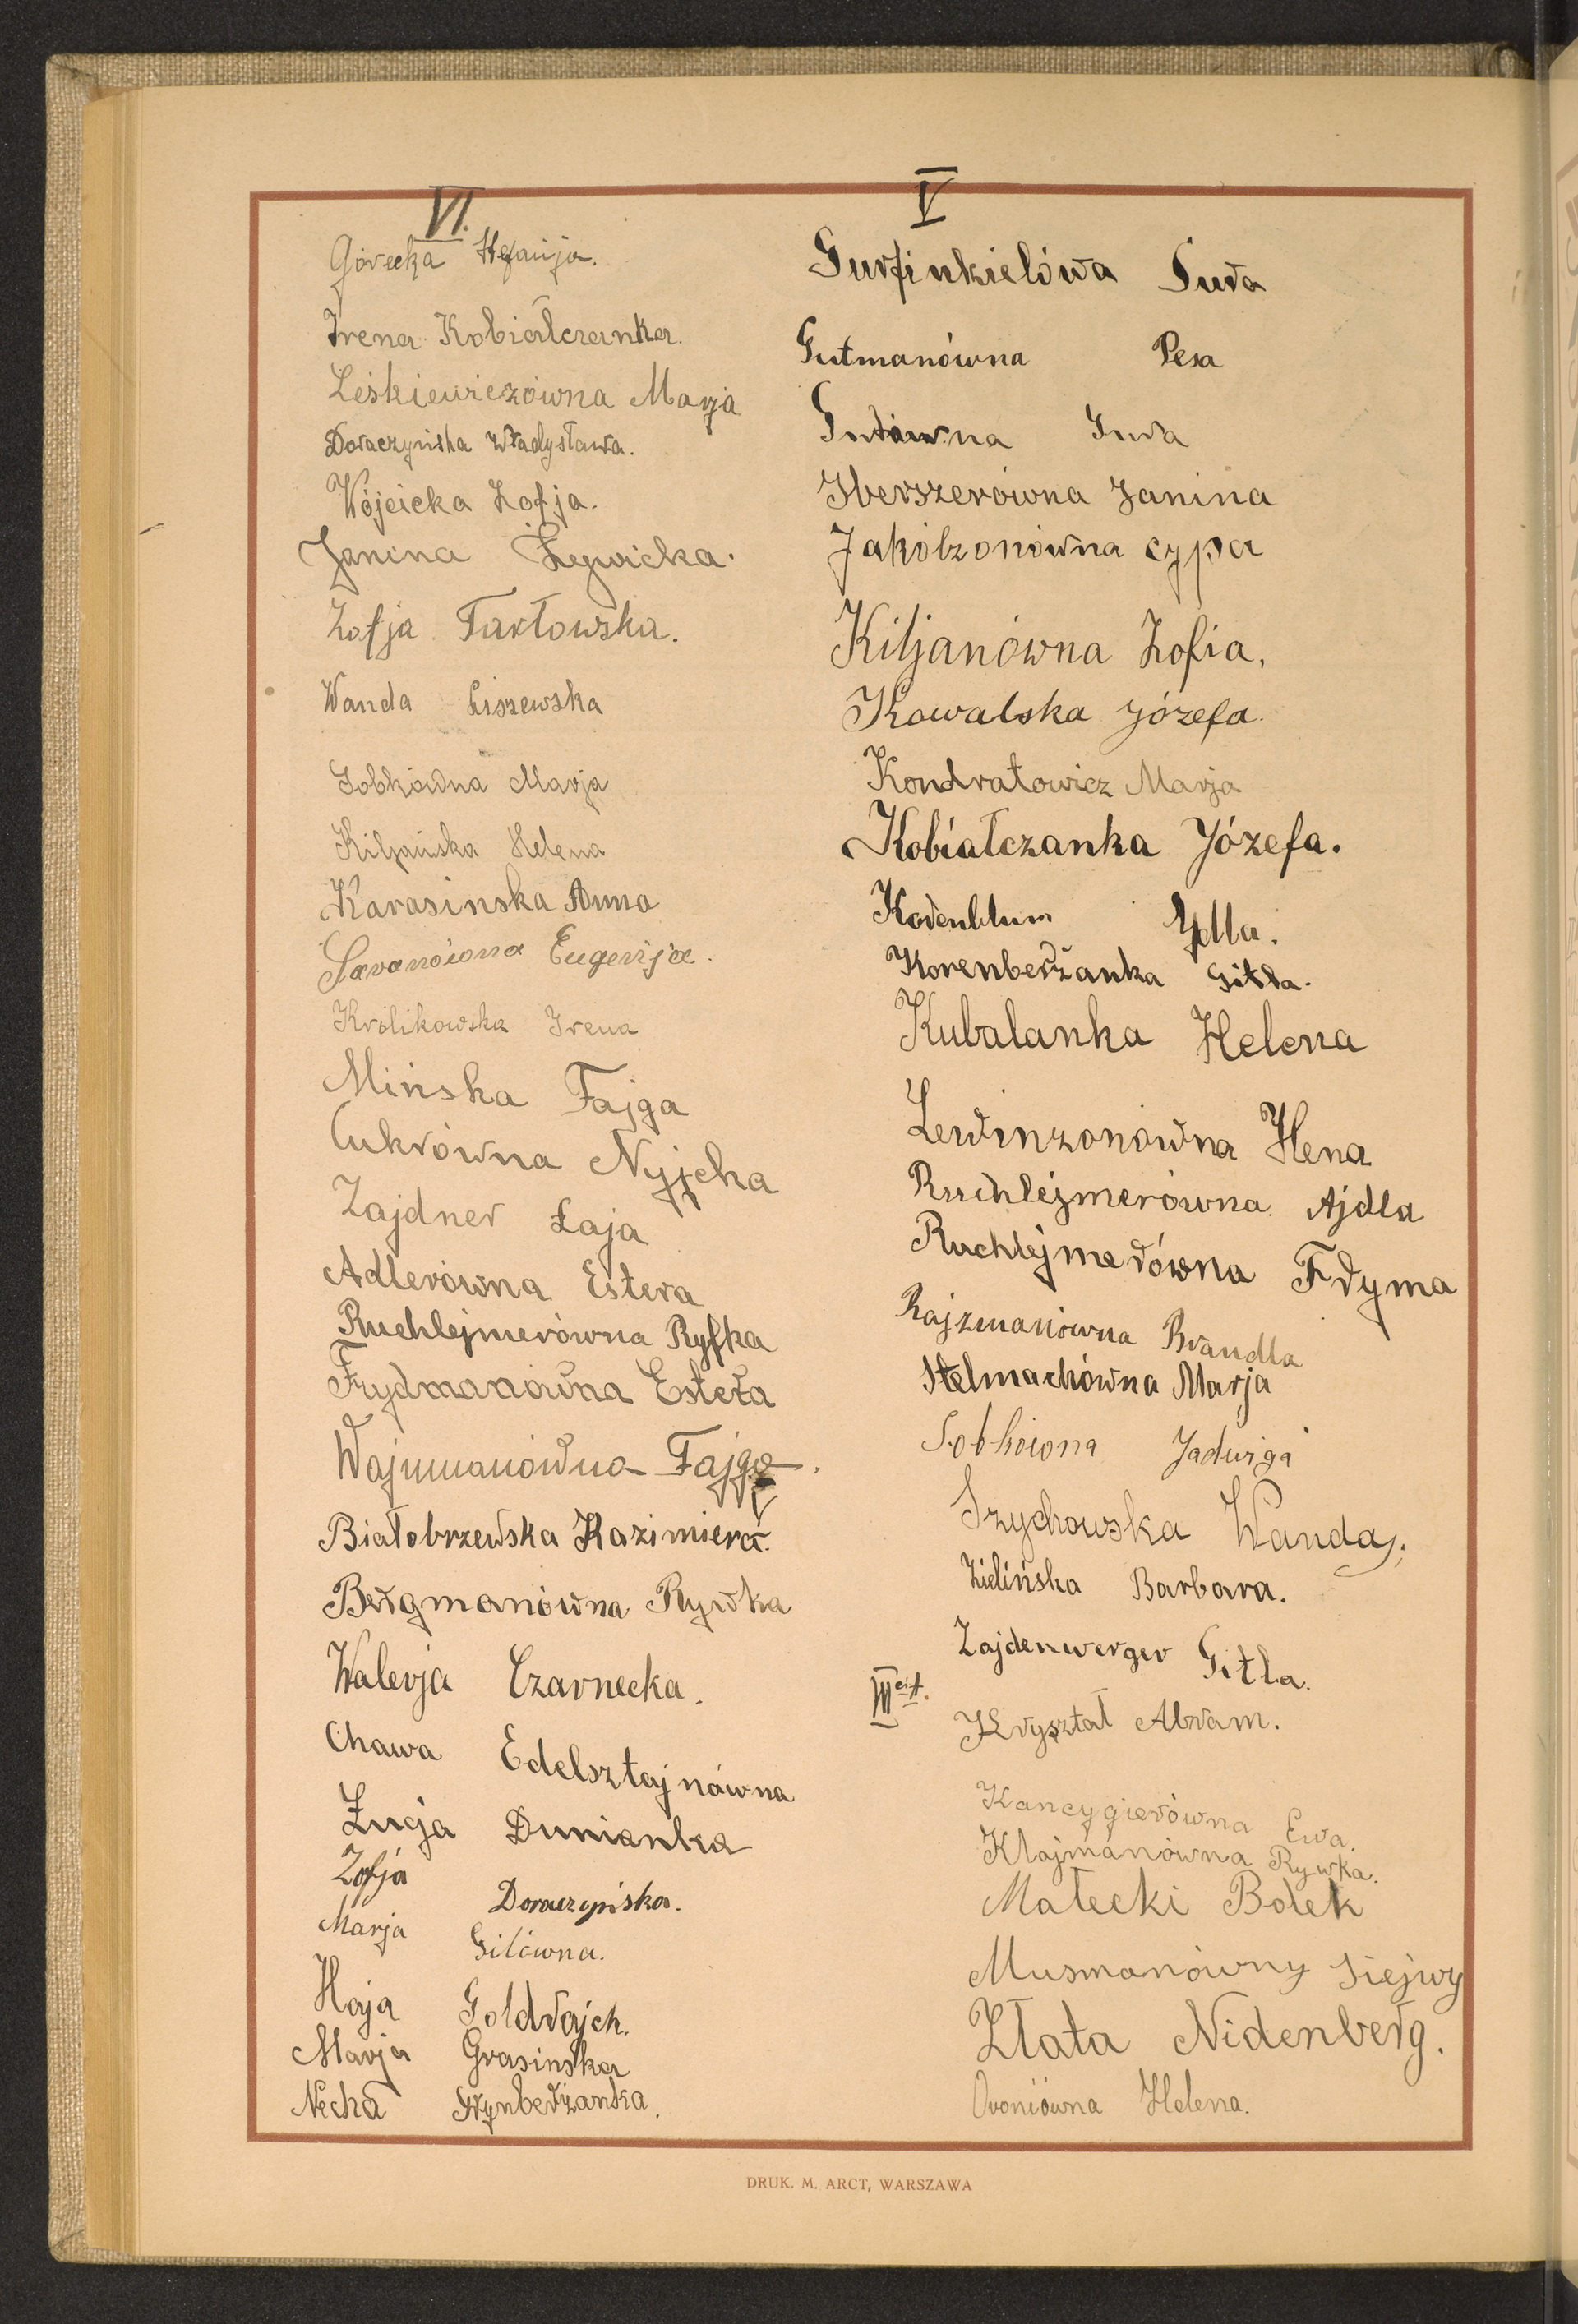 VI.
Górecka Stefanja.
Irena Kobiałczanka.
Leśkiewiczówna Marja
Doraczyńska Władysława.
Wójcicka Zofja.
Janina Łegwicka.
Zofja Tarłowska.
Wanda Liszewska
Sobkówna Marja
Kiljańska Helena
Karasinska Anna
Savanówna Eugenja.
Królikowska Irena
Mińska Fajga
Cukrówna Nyjcha
Zajdner Łaja
Adlerówna Estera
Ruchlejmerówna Ryfka
Frydmanówna Estera
Wajnmanówna Fajga.
Białobrzewska Kazimiera.
Bergmanówna Rywka
Walerja Czarnecka.
Chawa Edelsztajnówna
Łucja Dunianka
Zofja Doraczyńska.
Marja Gilówna.
Haja Goldrajch.
Marja Grasinska
Necha Grynberżanka.
V
Gurfinkielówa Sura
Gutmanówna Pesa
Gutówna Sura
Iberszerówna Janina
Jakóbzonówna Cypa
Kiljanówna Zofia,
Kowalska Józefa.
Kondratowicz Marja
Kobiałczanka Józefa.
Korenblum Ydla.
Korenberżanka Gitla.
Kubalanka Helena
Lewinzonówna Hena
Ruchlejmerówna Ajdla
Ruchlejmerówna Fryma
Rajzmanówna Brandla
Stelmachówna Marja
Sobkówna Jadwiga
Szychowska Wanda.
Zielińska Barbara.
Zajdenwerger Gitla.
III
Kryształ Abram.
Kancygierówna Ewa.
Klajmanówna Rywka.
Małecki Bolek
Musmanówny Siejwy
Złata Nidenberg.
Owoniówna Helena.
DRUK. M. ARCT, WARSZAWA